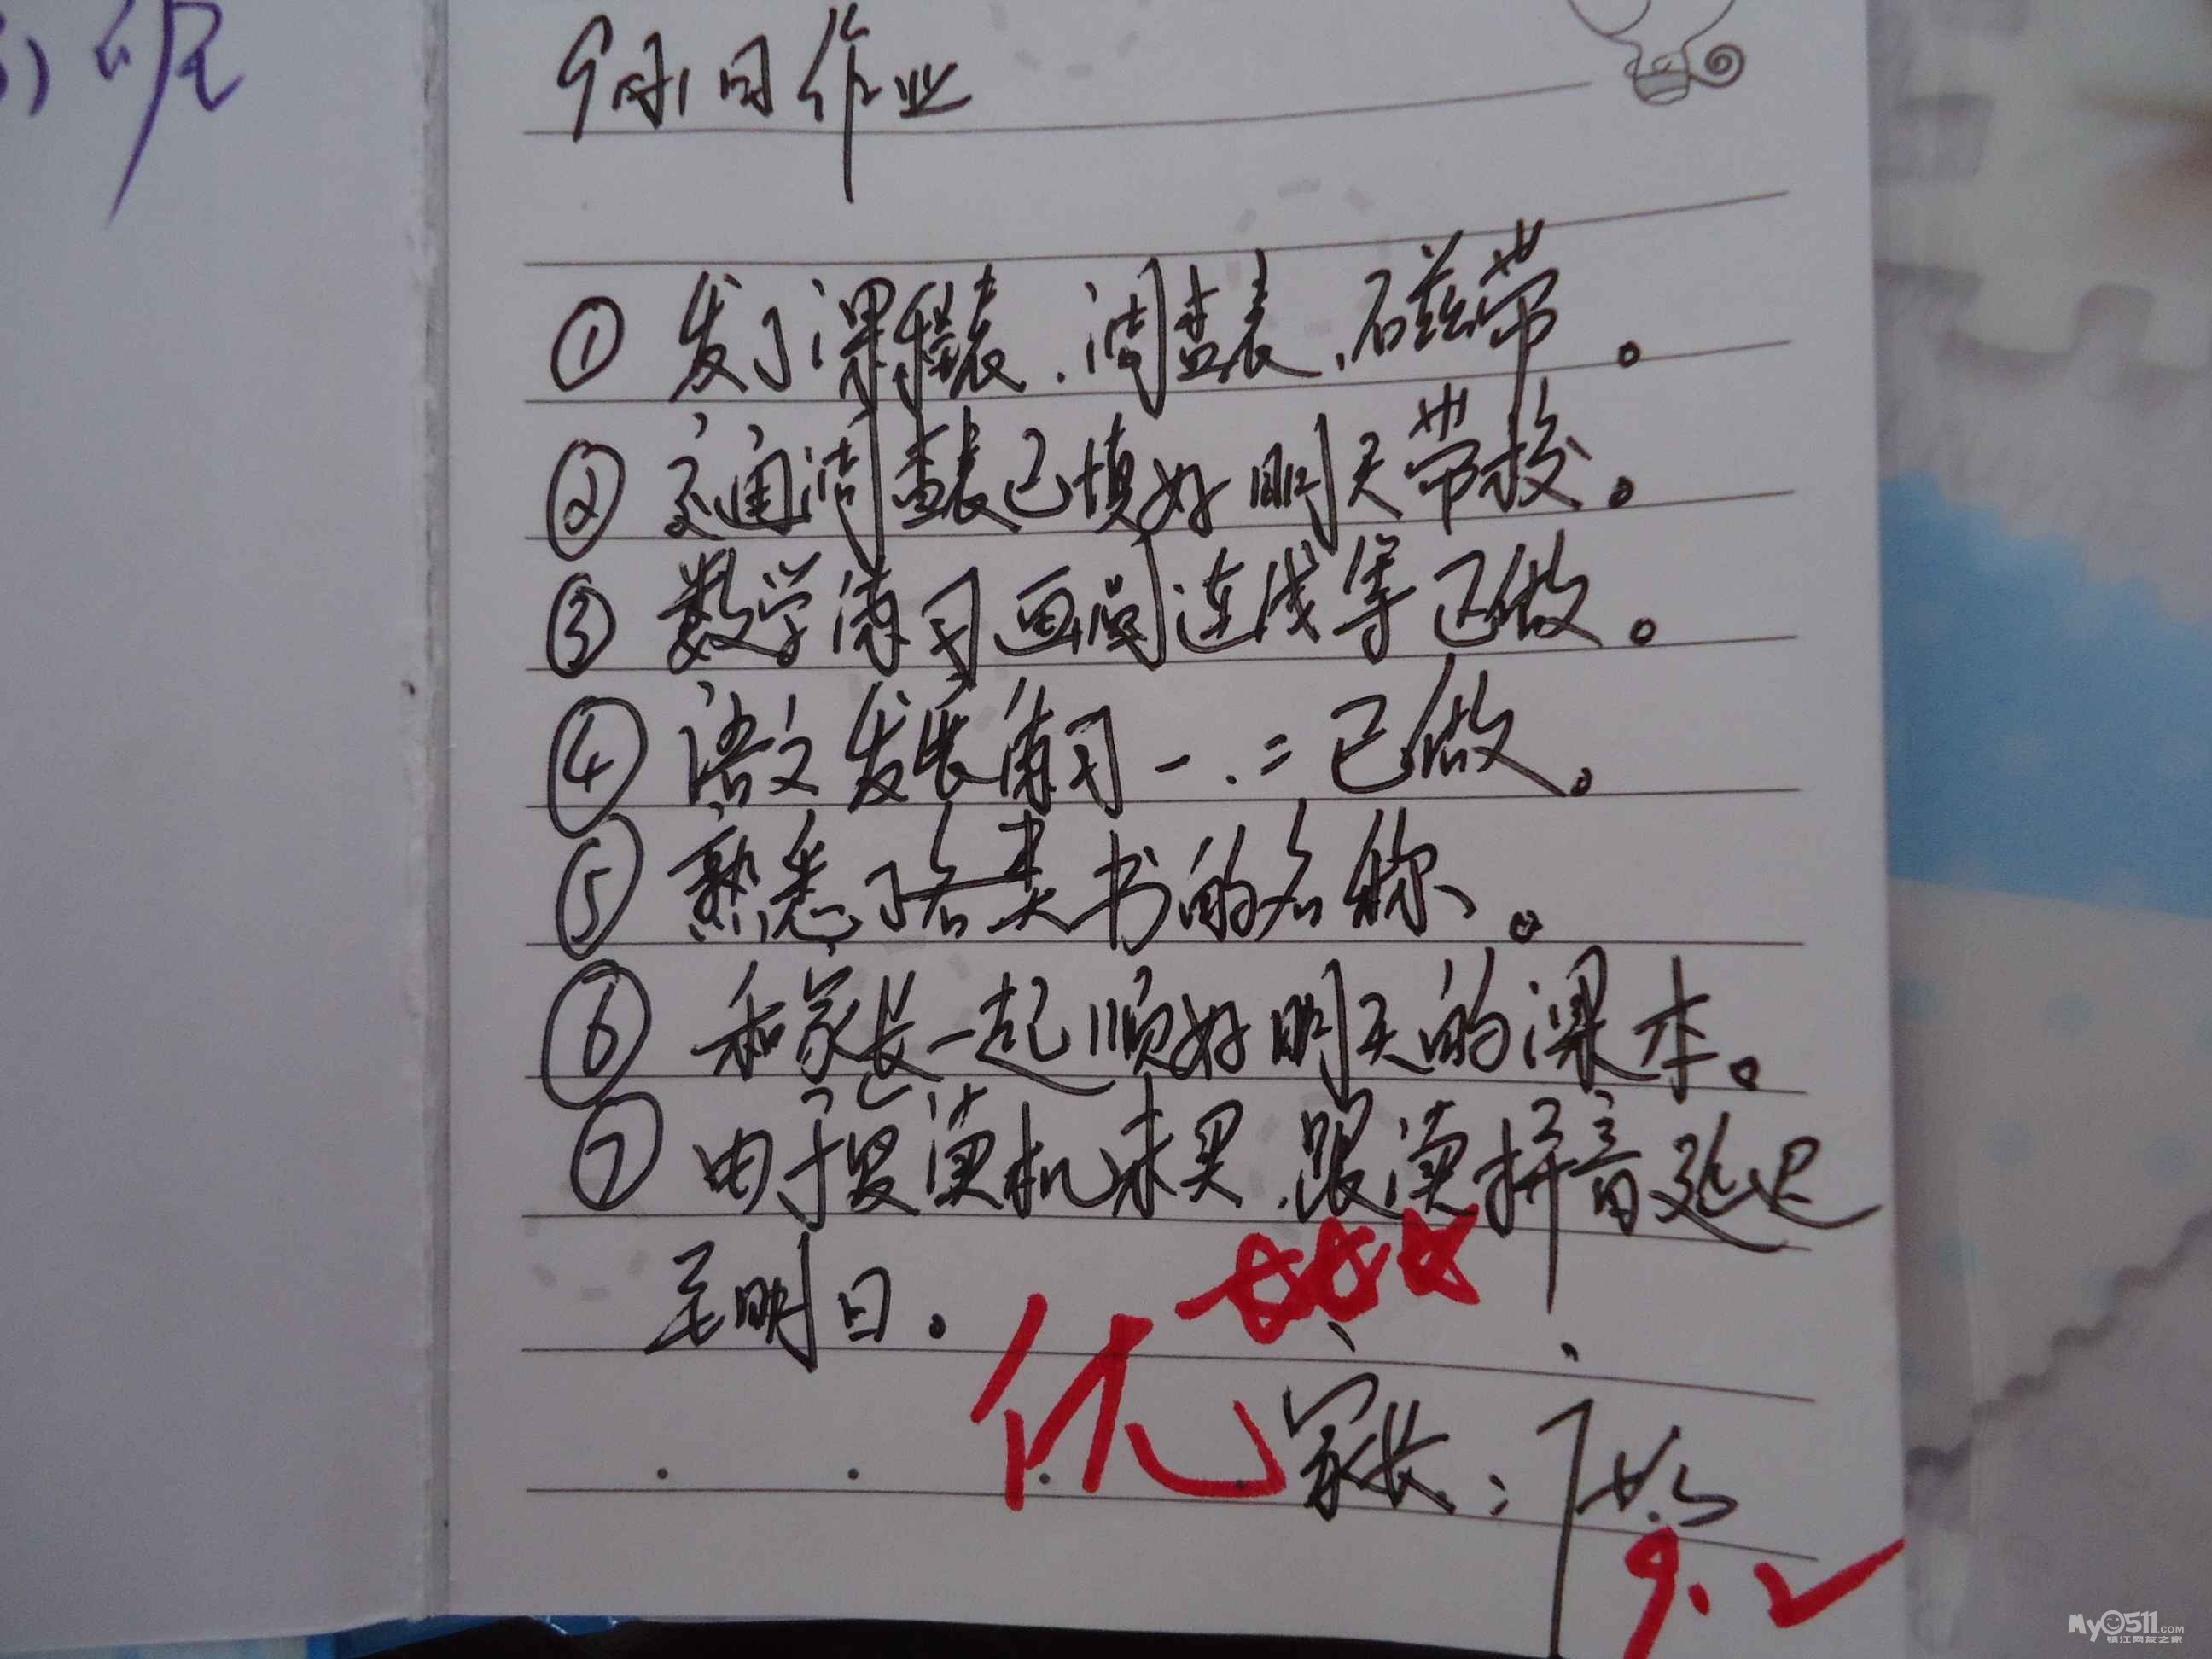 班
9月1日作业
① 发了课程表、调查表、磁带。
② 交通调查表已填好明天带校。
③ 数学练习画圈连线等已做。
④ 语文发展练习一.二已做。
⑤ 熟悉了各类书的名称。
⑥ 和家长一起顺好明天的课本。
⑦ 由于复读机未买、跟读拼音延迟
至明日。
优
家长:
9.2
My0511.COM
镇江网友之家